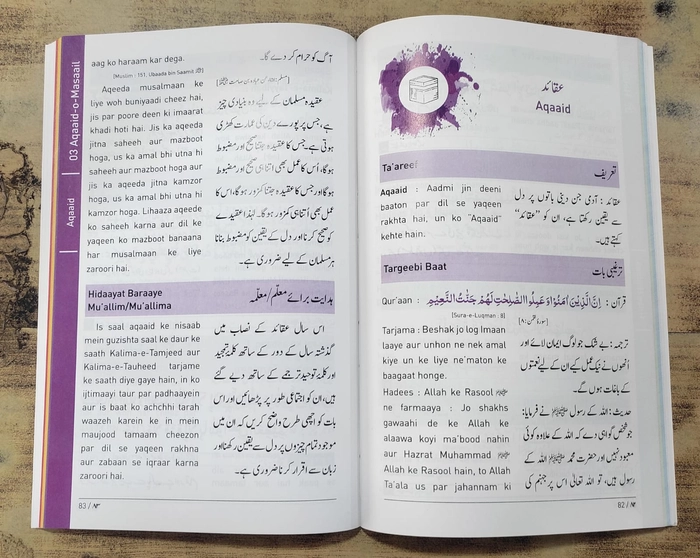 عقائد
Aqaaid
Ta'areef
تعریف
Aqaaid : Aadmi jin deeni
baaton par dil se yaqeen
rakhta hai, un ko "Aqaaid"
kehte hain.
عقائد : آدمی جن دینی باتوں پر دل
سے یقین رکھتا ہے، ان کو ”عقائد“
کہتے ہیں۔
Targeebi Baat
ترغیبی بات
Qur'aan :
قرآن : اِنَّ الَّذِيْنَ اٰمَنُوْا وَعَمِلُوا الصّٰلِحٰتِ لَهُمْ جَنّٰتُ النَّعِيْمِ
[Sura-e-Luqman : 8]
[سورۂ لقمٰن:۸]
Tarjama : Beshak jo log Imaan
laaye aur unhon ne nek amal
kiye un ke liye ne'maton ke
baagaat honge.
Hadees : Allah ke Rasool ﷺ
ne farmaaya : Jo shakhs
gawaahi de ke Allah ke
alaawa koyi ma'bood nahin
aur Hazrat Muhammad ﷺ
Allah ke Rasool hain, to Allah
Ta'ala us par jahannam ki
ترجمہ: بے شک جو لوگ ایمان لائے اور
انھوں نے نیک عمل کیے ان کے لیے نعمتوں
کے باغات ہوں گے۔
حدیث: اللہ کے رسول ﷺ نے فرمایا:
جو شخص گواہی دے کہ اللہ کے علاوہ کوئی
معبود نہیں اور حضرت محمد ﷺ اللہ کے
رسول ہیں، تو اللہ تعالیٰ اس پر جہنم کی
82 / ۸۲
03 Aqaaid-o-Masaail
Aqaaid
aag ko haraam kar dega.
[Muslim : 151, Ubaada bin Saamit]
Aqeeda musalmaan ke
liye woh buniyaadi cheez hai,
jis par poore deen ki imaarat
khadi hoti hai. Jis ka aqeeda
jitna saheeh aur mazboot
hoga, us ka amal bhi utna hi
saheeh aur mazboot hoga aur
jis ka aqeeda jitna kamzor
hoga, us ka amal bhi utna hi
kamzor hoga. Lihaaza aqeede
ko saheeh karna aur dil ke
yaqeen ko mazboot banaana
har musalmaan ke liye
zaroori hai.
آگ کو حرام کر دے گا۔
عقیدہ مسلمان کے لیے وہ بنیادی چیز
ہے، جس پر پورے دین کی عمارت کھڑی
ہوتی ہے، جس کا عقیدہ جتنا صحیح اور مضبوط
ہوگا، اُس کا عمل بھی اتنا ہی صحیح اور مضبوط
ہوگا اور جس کا عقیدہ جتنا کمزور ہوگا، اس کا
عمل بھی اُتنا ہی کمزور ہوگا۔ لہٰذا عقیدے
کو صحیح کرنا اور دل کے یقین کو مضبوط بنانا
ہر مسلمان کے لیے ضروری ہے۔
Hidaayat Baraaye
Mu'allim/Mu'allima
ہدایت برائے معلّم/معلّمہ
Is saal aqaaid ke nisaab
mein guzishta saal ke daur ke
saath Kalima-e-Tamjeed aur
Kalima-e-Tauheed tarjame
ke saath diye gaye hain, in ko
ijtimaayi taur par padhaayein
aur is baat ko achchhi tarah
waazeh karein ke in mein
maujood tamaam cheezon
par dil se yaqeen rakhna
aur zabaan se iqraar karna
zaroori hai.
اس سال عقائد کے نصاب میں
گذشتہ سال کے دور کے ساتھ کلمۂ تمجید
اور کلمۂ توحید ترجمے کے ساتھ دیے گئے
ہیں، ان کو اجتماعی طور پر پڑھائیں اور اس
بات کو اچھی طرح واضح کریں کہ ان میں
موجود تمام چیزوں پر دل سے یقین رکھنا اور
زبان سے اقرار کرنا ضروری ہے۔
83 / ۸۳